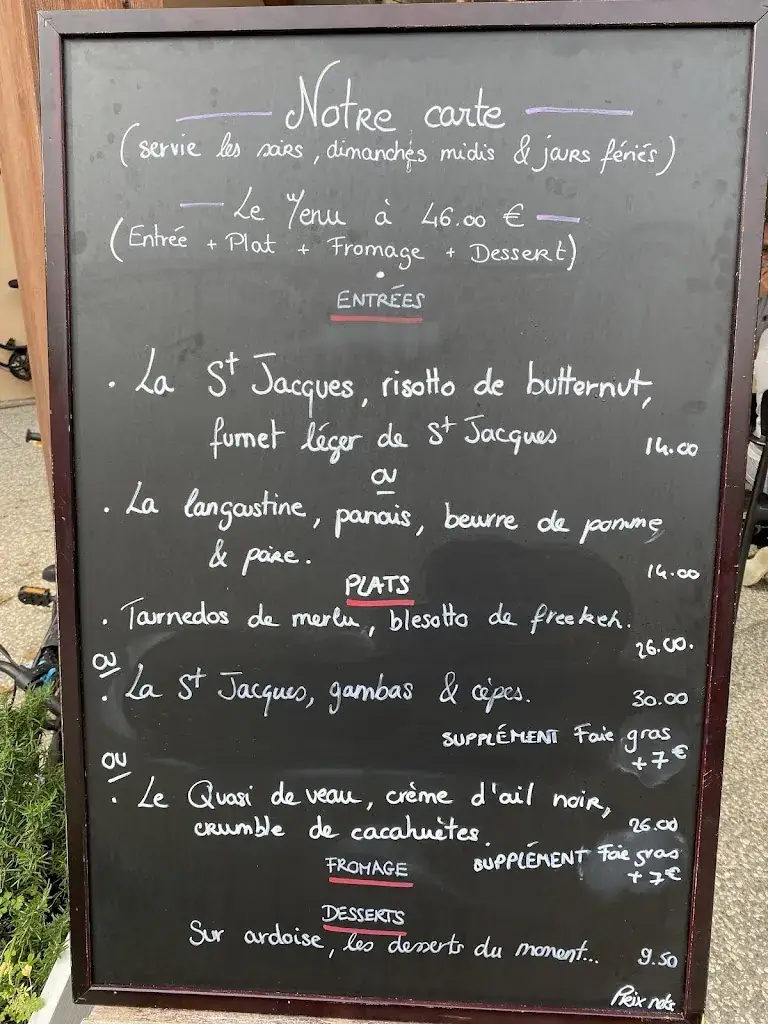 Notre carte
(servie les soirs, dimanches midis & jours fériés)
Le Menu à 46.00 €
(Entrée + Plat + Fromage + Dessert)
ENTRÉES
. La St Jacques, risotto de butternut,
fumet léger de St Jacques 14.00
ou
. La langoustine, panais, beurre de pomme
& poire. 14.00
PLATS
. Tournedos de merlu, blesotto de freekeh.
26.00.
ou
. La St Jacques, gambas & cèpes. 30.00
SUPPLÉMENT Foie gras
+7€
ou
. Le Quasi de veau, crème d'ail noir,
crumble de cacahuètes. 26.00
SUPPLÉMENT Foie gras
+7€
FROMAGE
DESSERTS
Sur ardoise, les desserts du moment... 9.50
Prix nets